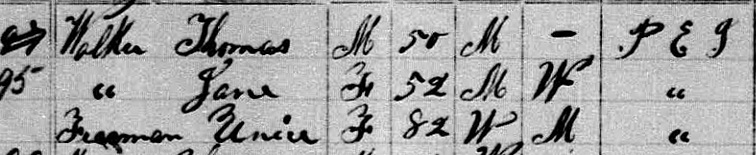 Walker Thomas M 50 M - P E I
95 " Jane F 52 M W "
Freeman Unice F 82 W M "